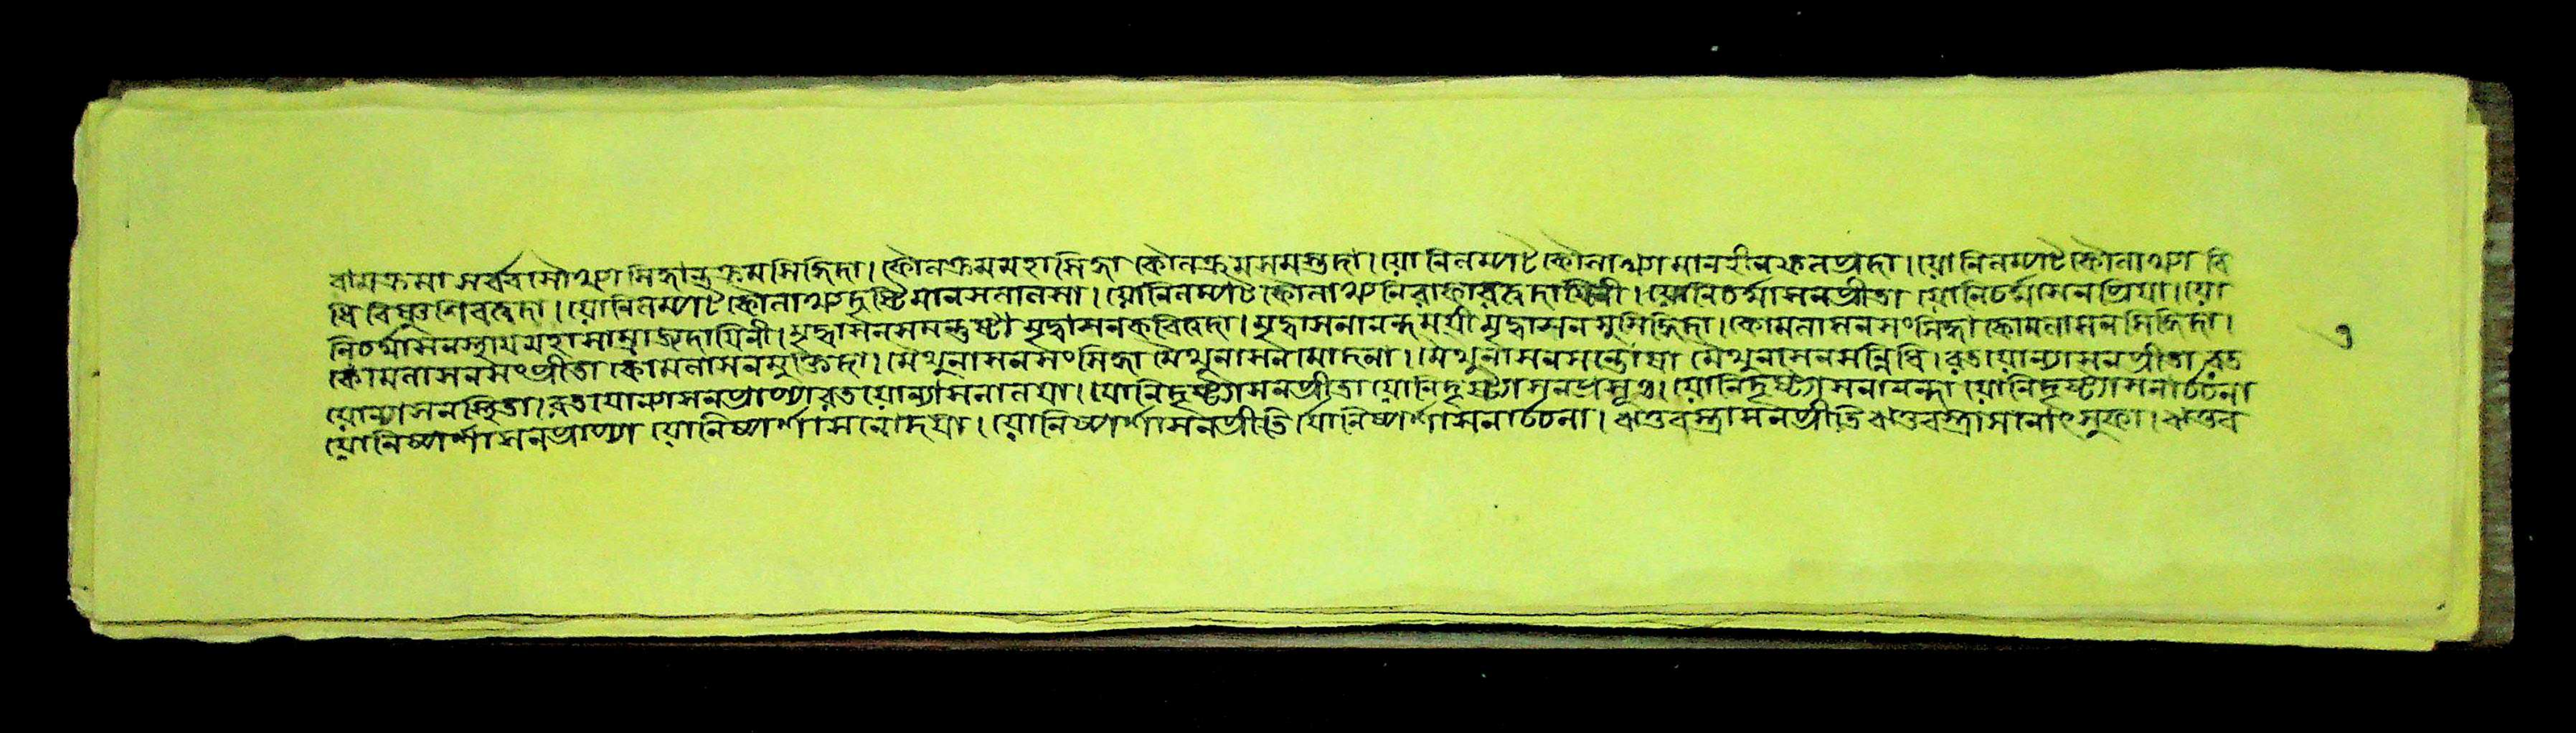 বামক্রমা সর্ব্ববামৌঅগ সিদ্ধান্ত্রক্রমসিদ্ধিদা। কৌলক্রমমহাসিদ্ধা কৌলক্রমসমস্তদা। যোনিলম্পট কৌলাঅগ মানহীনফলপ্রদা। যোনিলম্পট কৌলাঅগ বি
ধি বিষ্ণুশিবত্বদা। যোনিলম্পট কৌলাঅগ দৃষ্টিমানসলালসা। যোনিলম্পট কৌলাঅগ নিরাকারত্বদায়িনী। যোনিচর্মাসনপ্রীতা যোনিচর্মাসনপ্রিয়া। যো
নিচর্মাসনস্থায় মহাসাম্রাজ্যদায়িনী। মৃদ্বাসনসমন্তুষ্টা মৃদ্বাসনকবিত্বদা। মৃদ্বাসনানন্দময়ী মৃদ্বাসনসুসিদ্ধিদা। কোমলাসনসংসিদ্ধা কোমলাসনসিদ্ধিদা।
কোমলাসনসংপ্রীতা কোমলাসনমুক্তিদা। মৈথুনাসনসংসিদ্ধা মৈথুনাসনমোদনা। মৈথুনাসনসন্তোষা মৈথুনাসনসন্নিধি। রতযোন্যাসনপ্রীতা রত
যোন্যাসনস্থিতা। রতযোন্যাসনপ্রাপ্যা রতযোন্যাসনালয়া। যোনিদৃষ্ট্যাসনপ্রীতা যোনিদৃষ্ট্যাসনপ্রসূ। যোনিদৃষ্ট্যাসনানন্দা যোনিদৃষ্ট্যাসনার্চ্চনা
যোনিস্পর্শাসনপ্রাপ্যা যোনিস্পর্শাসনোদয়া। যোনিস্পর্শাসনপ্রীতি র্যোনিস্পর্শাসনার্চ্চনা। ঋতুবস্ত্রাসনপ্রীতি ঋতুবস্ত্রাসনোৎসুকা। ঋতুব